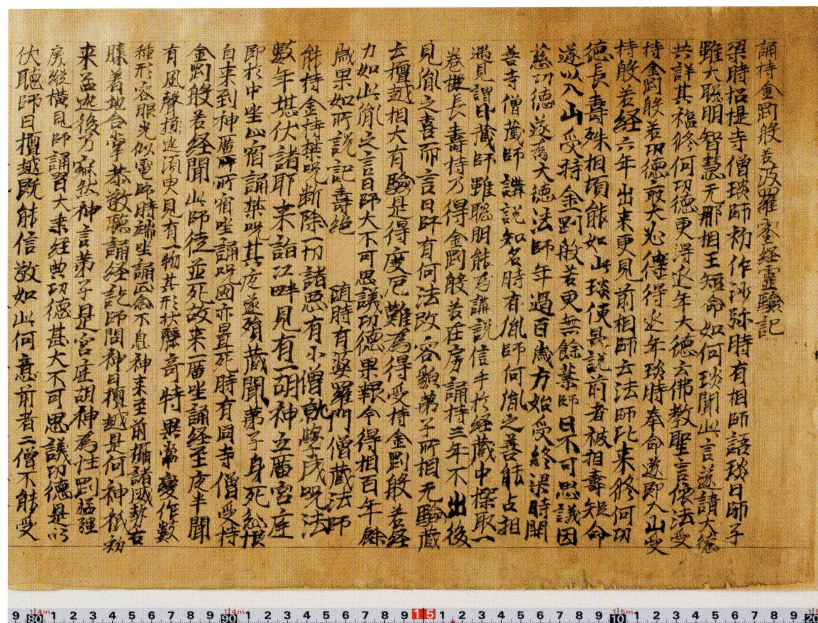 誦持金剛般若波羅蜜經靈驗記
梁時招提寺僧琰師初作沙弥時有相師語琰曰師子
雖大聰明智慧无那相王短命如何琰聞此言遂請大德
共詳其福修何功德更得延年大德云佛教聖言依法受
持金剛般若功德最大必得延年琰時奉命遂即入山受
持般若經六年出來更見前相師云法師比來修何功
德長壽殊相頓能如此琰便具說前者被相壽短命
遂以入山受持金剛般若更無餘業師曰不可思議因
茲功德遂為大德法師年過百歲方始受終梁時開
善寺僧藏師講說知名時有胤師何胤之善能占相
遇見謂曰藏師雖聰明能為講說信手於經藏中採取一
卷擬長壽持乃得金剛般若在房誦持三年不出後
見胤之喜而言曰師有何法改容貌弟子所相无驗藏
云檀越相大有驗是得度厄難為得受持金剛般若經
力如此胤之言曰師大不可思議功德果報今得相百年餘
歲果如所說記壽終 隨時有婆羅門僧藏法師
能持金持禁呪斷除一切諸惡有小僧就學成呪法
數年堪伏諸耶來詣江畔見有一胡神立廣宮座
即於中坐此宿誦禁呪其夜遂殞藏聞弟子身死忿恨
自來到神廣所宿坐誦呪因亦暴死時有同寺僧受持
金剛般若經聞此師徒並死故來廣坐誦經至夜半聞
有風聲極迅須臾見有一物其形狀瓌奇特異常變作數
種形容眼光似電師時端坐誦念不息神來至前攝諸威勢右
膝着地合掌恭敬聽誦經訖師問神曰檀越是何神祇初
來猛迅後乃寂然神言弟子是宮座胡神為性剛猛強
房縱橫見師誦習大乘經典功德甚大不可思議功德是以
伏聽師曰檀越既能信敬如此何意前者二僧不能受
9 80 1 2 3 4 5 6 7 8 9 90 1 2 3 4 5 6 7 8 9 15 1 2 3 4 5 6 7 8 9 10 1 2 3 4 5 6 7 8 9 20